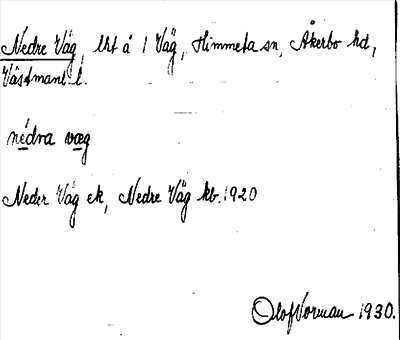 Nedre Väg, lht å 1 Väg, Himmeta sn, Åkerbo hd,
Västmanl. l.
nédra væg
Neder Väg ek, Nedre Väg kb. 1920
Olof Norman 1930.